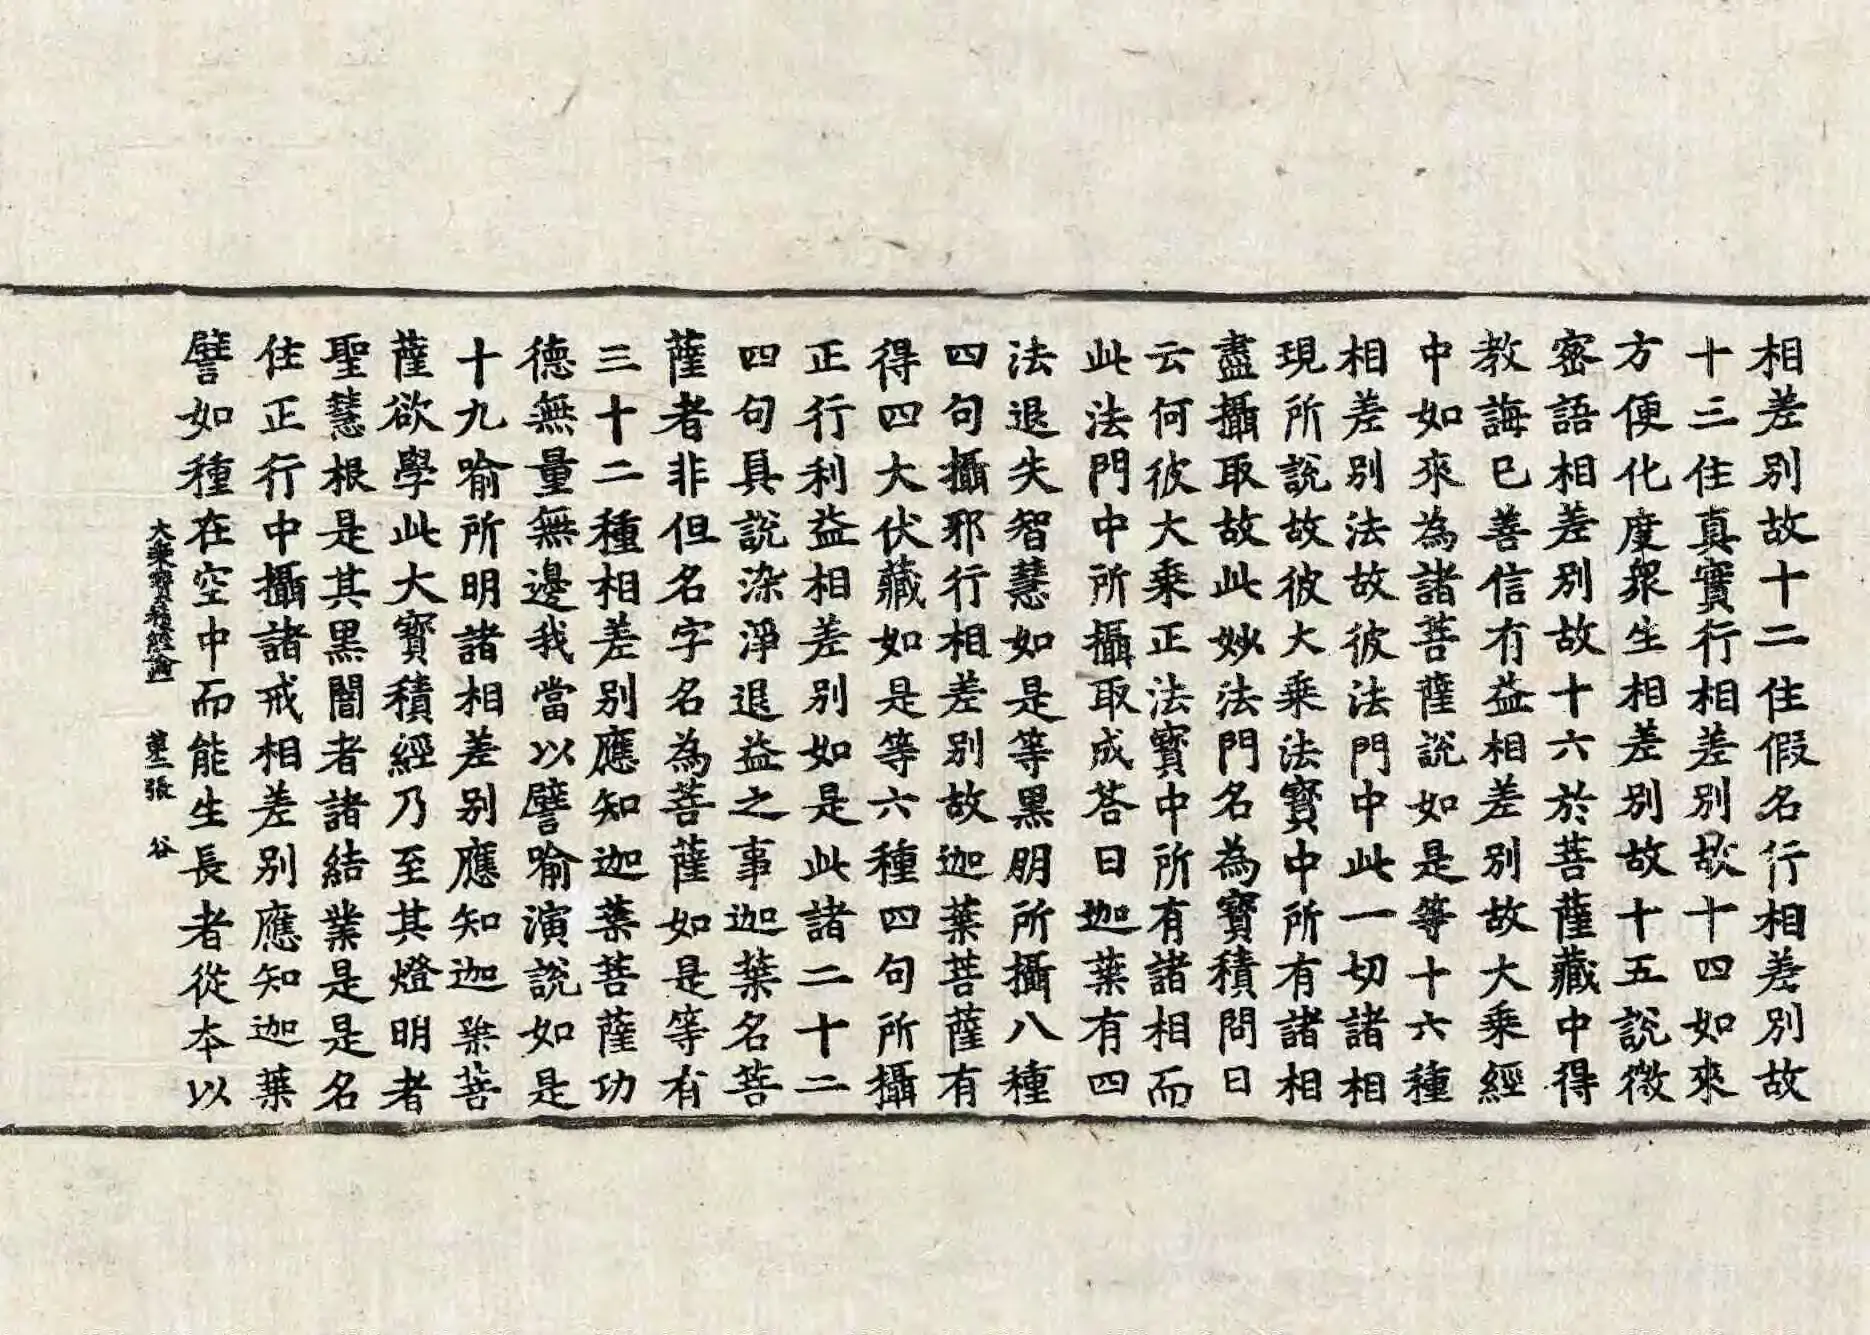 相差別故十二住假名行相差別故
十三住真實行相差別故十四如來
方便化度衆生相差別故十五說微
密語相差別故十六於菩薩藏中得
教誨已善信有益相差別故大乘經
中如來為諸菩薩說如是等十六種
相差別法故彼法門中此一切諸相
現所說故彼大乘法寶中所有諸相
盡攝取故此妙法門名為寶積問曰
云何彼大乘正法寶中所有諸相而
此法門中所攝取成答曰迦葉有四
法退失智慧如是等黑朋所攝八種
四句攝邪行相差別故迦葉菩薩有
得四大伏藏如是等六種四句所攝
正行利益相差別如是此諸二十二
四句具說染淨退益之事迦葉名菩
薩者非但名字名為菩薩如是等有
三十二種相差別應知迦葉菩薩功
德無量無邊我當以譬喻演說如是
十九喻所明諸相差別應知迦葉菩
薩欲學此大寶積經乃至其燈明者
聖慧根是其黑闇者諸結業是是名
住正行中攝諸戒相差別應知迦葉
譬如種在空中而能生長者從本以
大乘寶積經論 第二張 谷